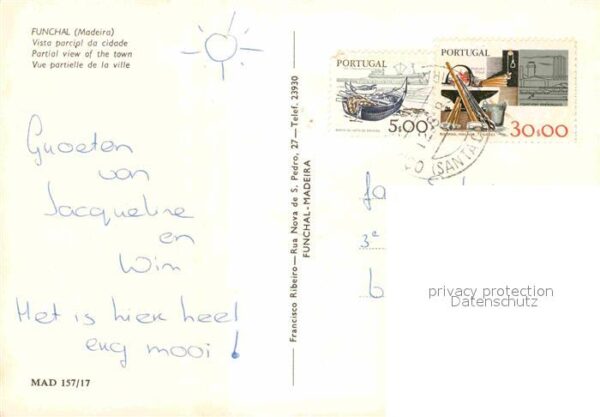 FUNCHAL (Madeira)
Vista parcipl da cidade
Partial view of the town
Vue partielle de la ville
Groeten
van
Jacqueline
en
Wim
Het is hier heel
erg mooi!
MAD 157/17
Francisco Ribeiro—Rua Nova de S. Pedro, 27—Telef. 23930
FUNCHAL-MADEIRA
PORTUGAL
5$00
PORTUGAL
30$00
(SANTA
3e
privacy protection
Datenschutz